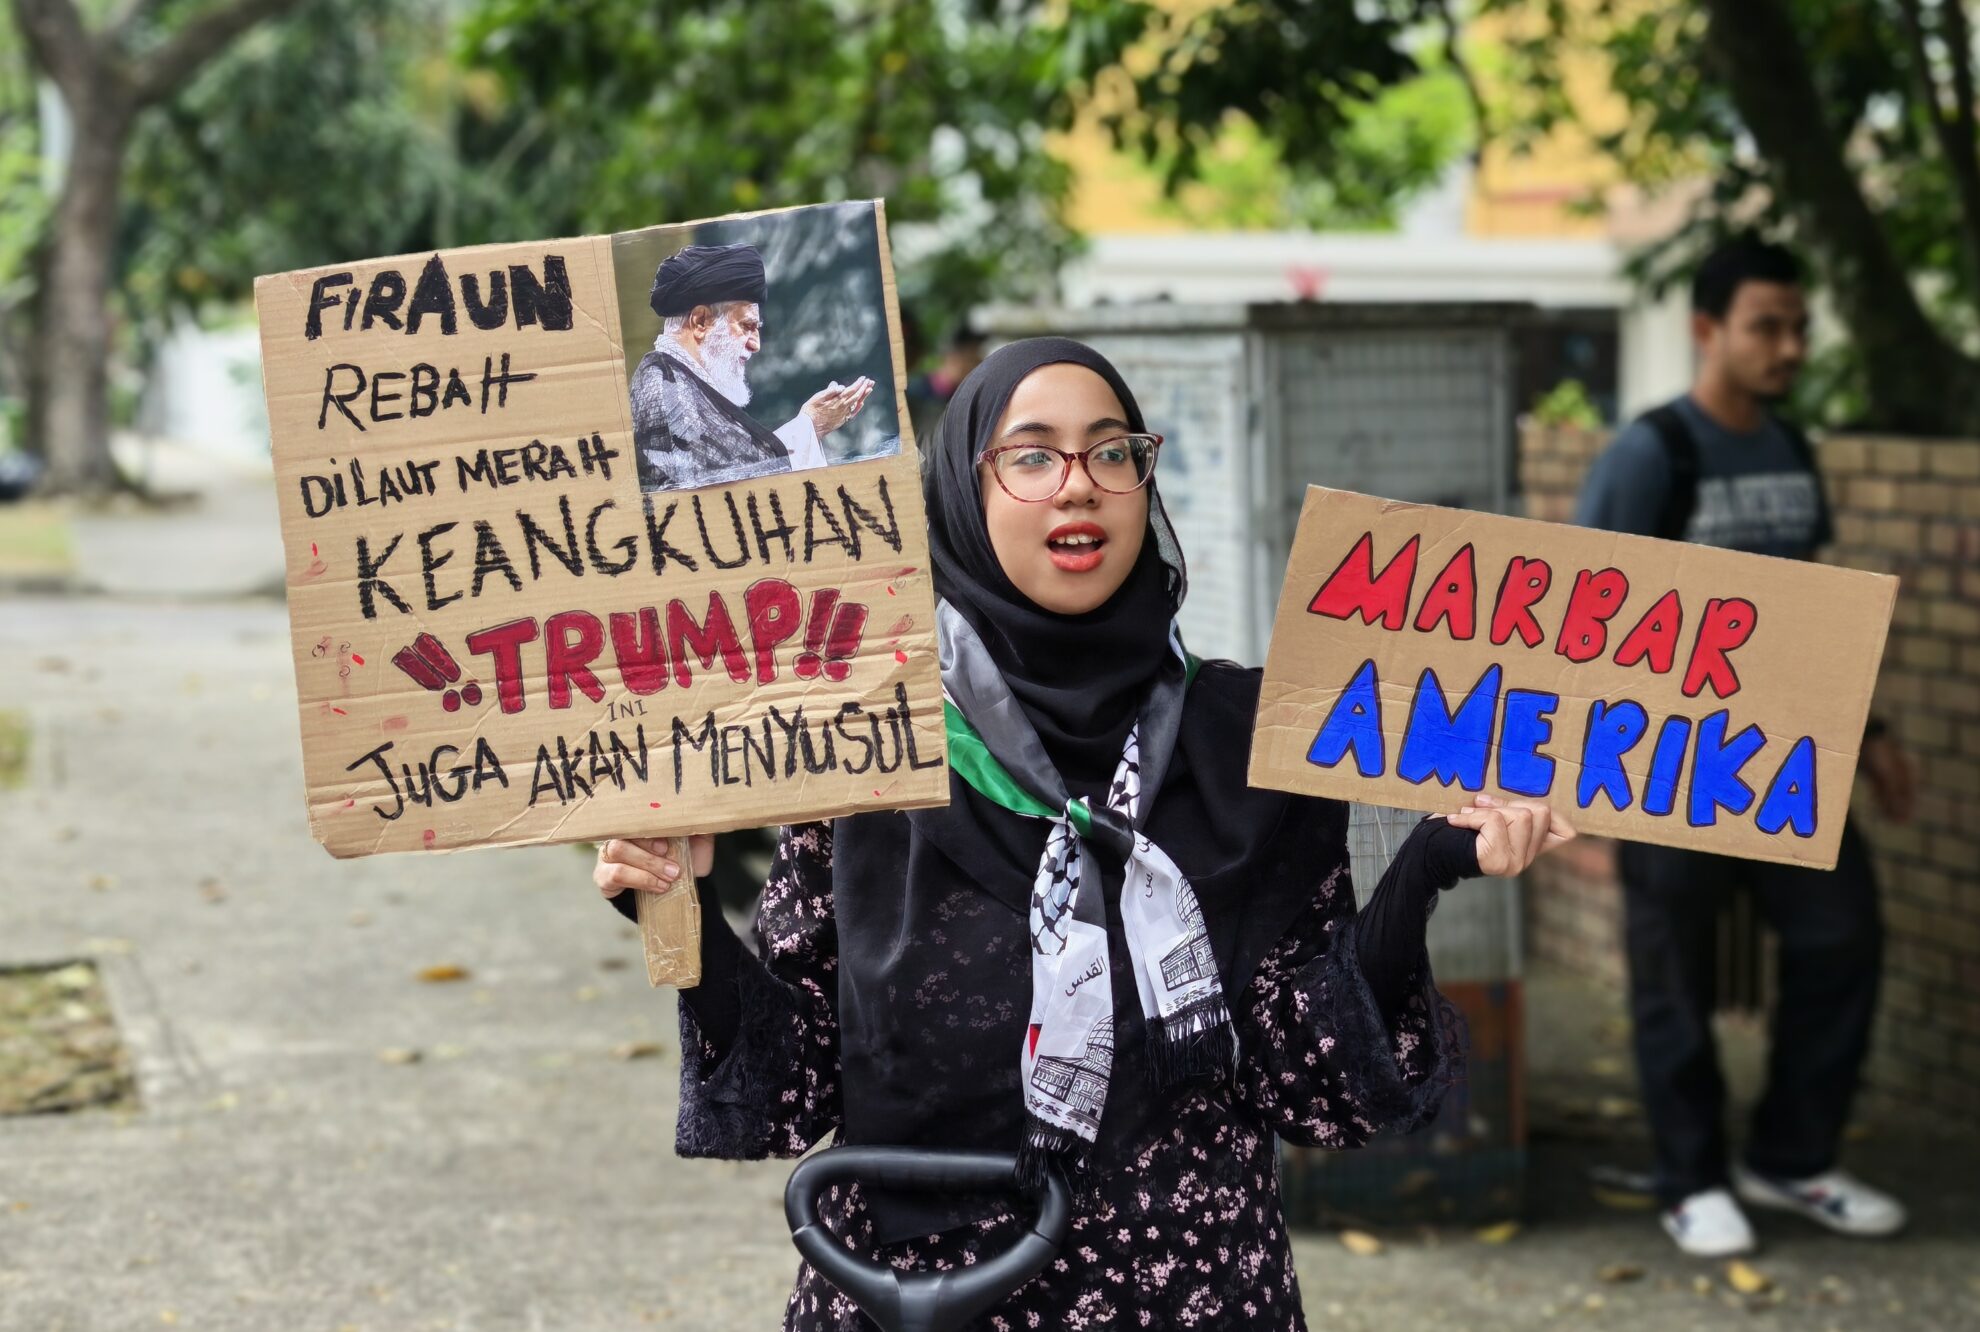 FIRAUN
REBAH
DILAUT MERAH
KEANGKUHAN
!!TRUMP!!
INI
JUGA AKAN MENYUSUL
MARBAR
AMERIKA
القدس